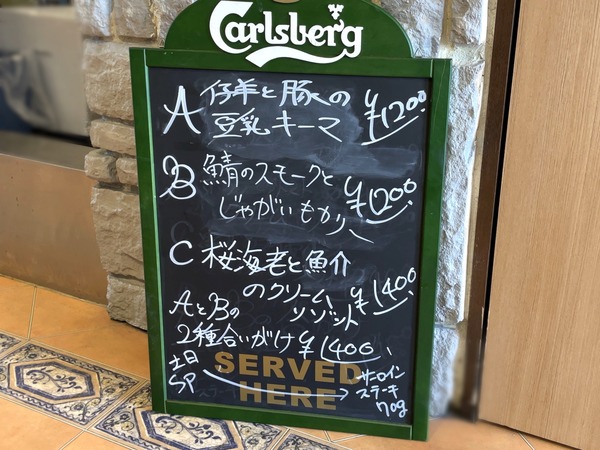 Carlsberg
A 仔羊と豚の ¥1200
豆乳キーマ
B 鯖のスモークと ¥1200
じゃがいもカリー
C 桜海老と魚介
のクリームリゾット ¥1400
AとBの
2種合いがけ ¥1400
土日
SP
SERVED
HERE
サーロイン
ステーキ
170g